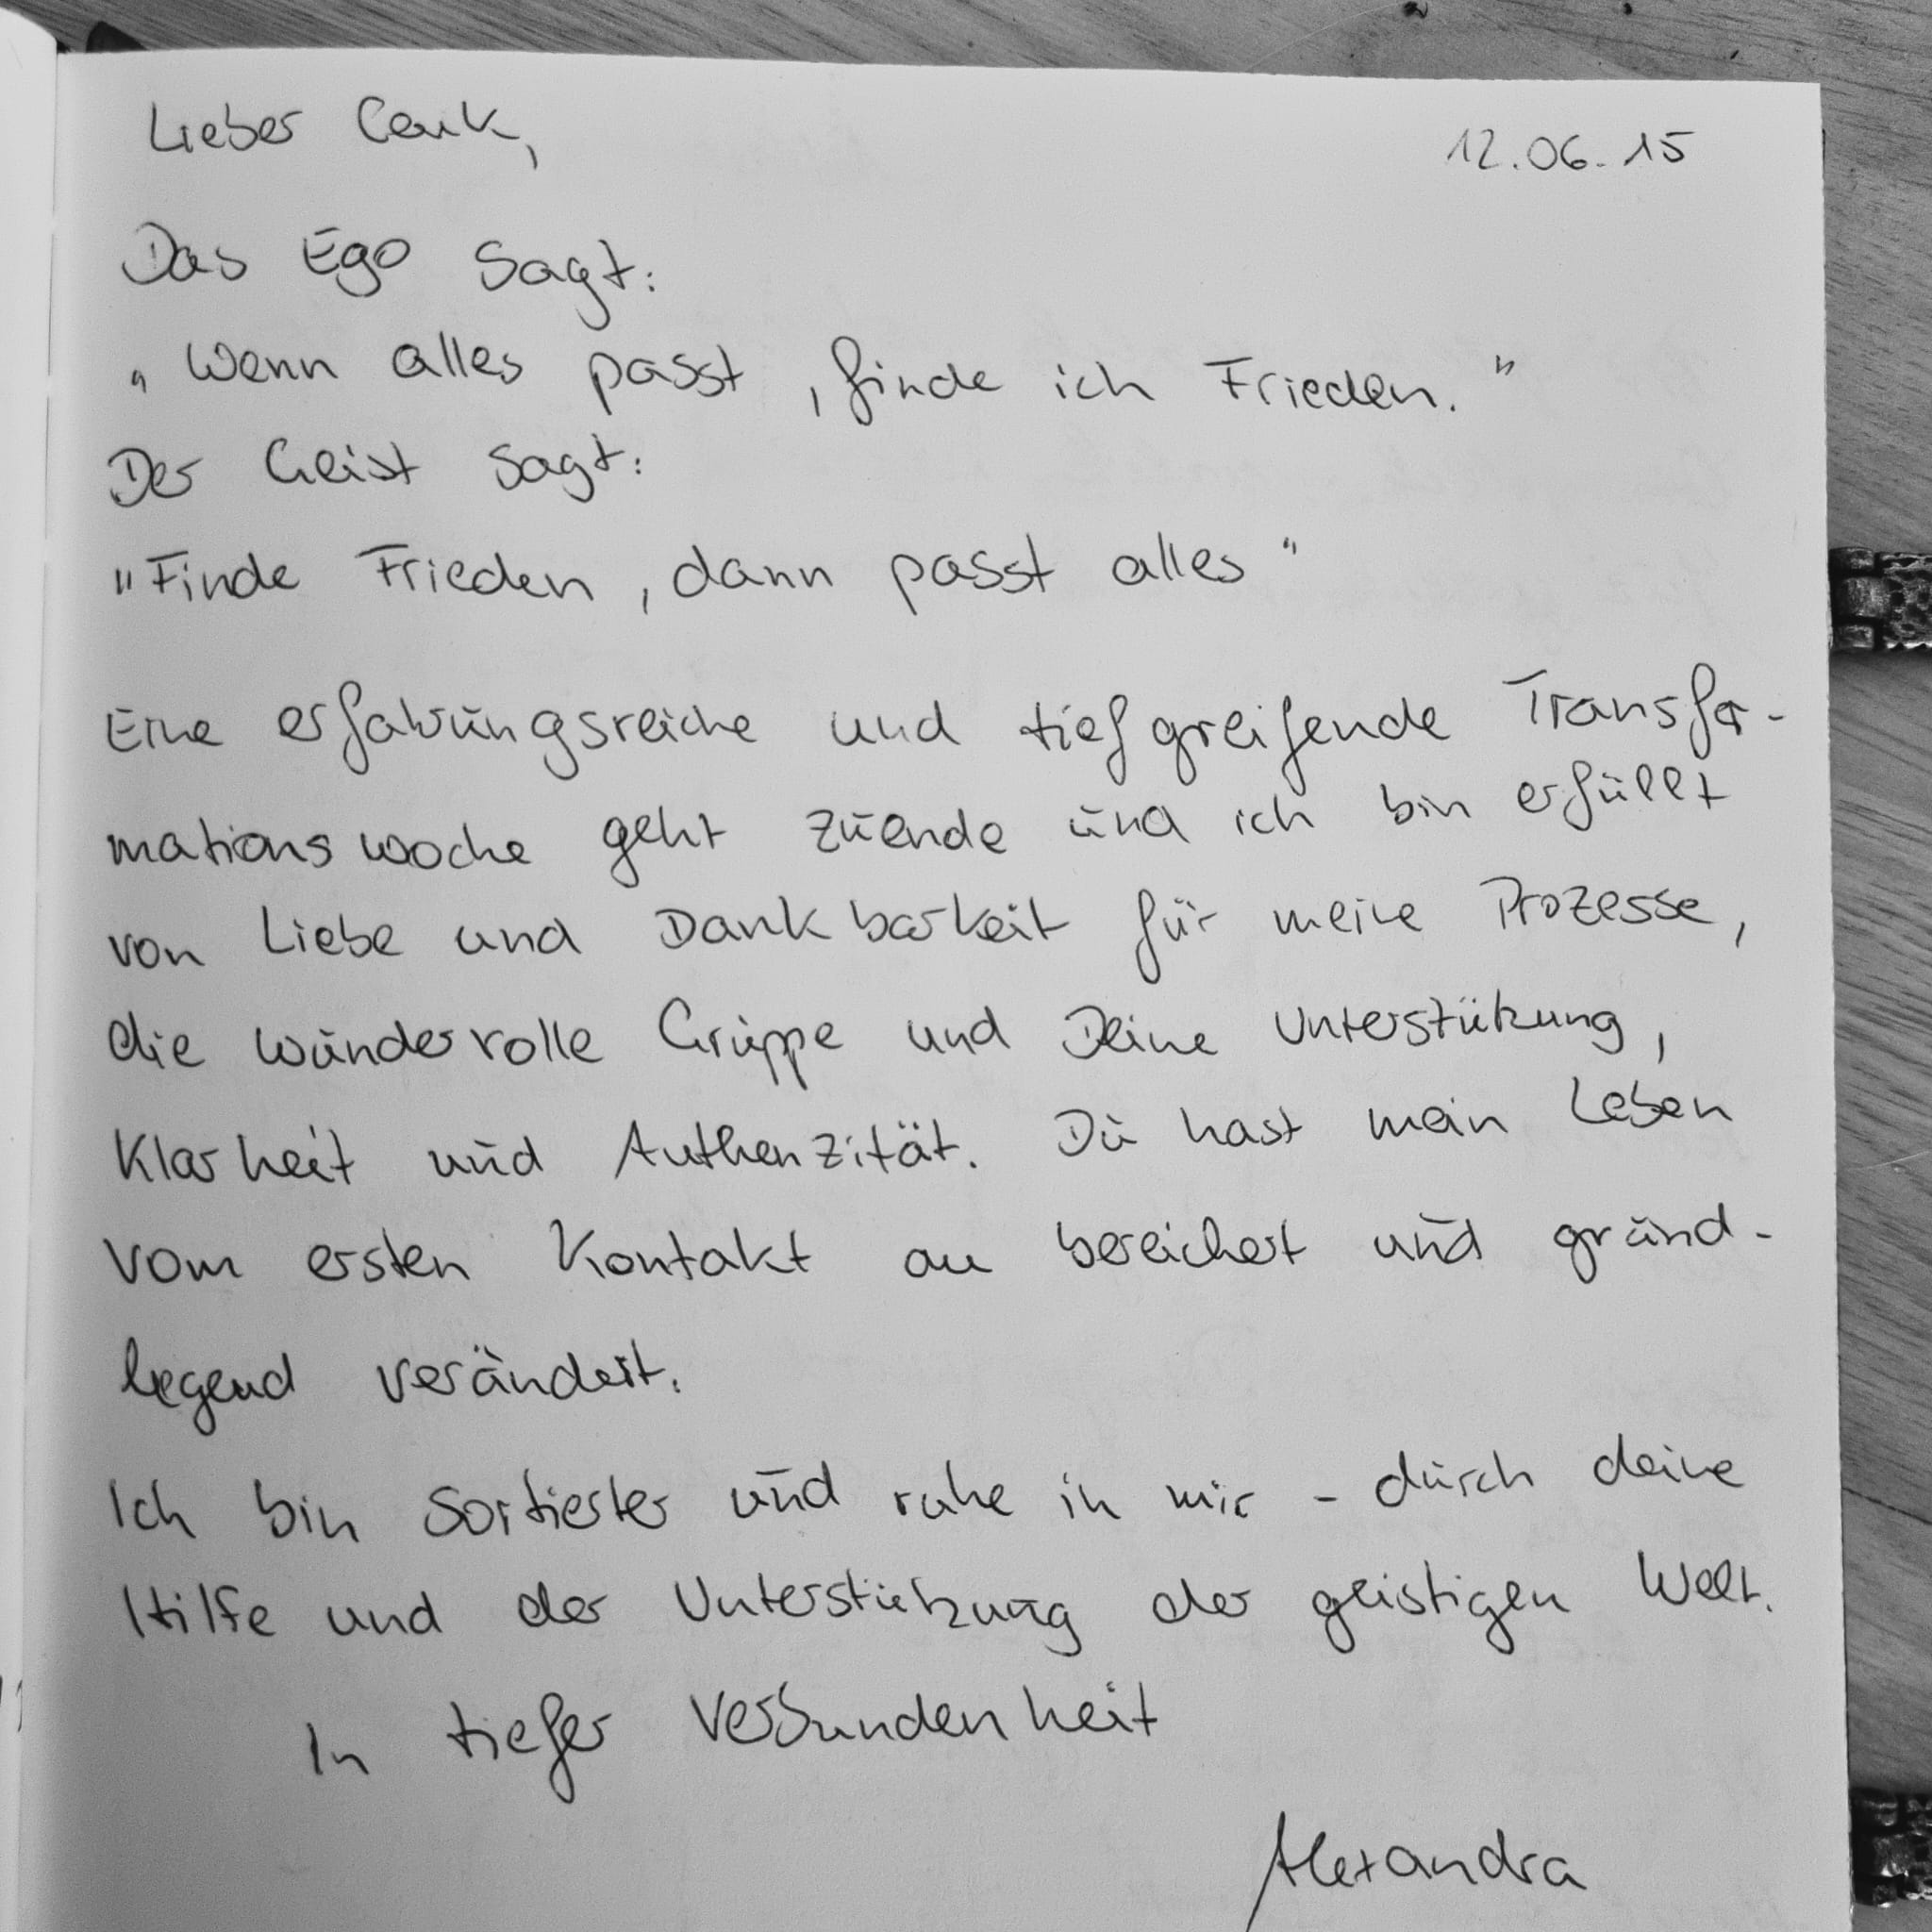 Lieber Cenk,
12.06.15
Das Ego sagt:
„Wenn alles passt, finde ich Frieden."
Der Geist sagt:
"Finde Frieden, dann passt alles"
Eine erfahrungsreiche und tiefgreifende Transfor-
mationswoche geht zuende und ich bin erfüllt
von Liebe und Dankbarkeit für meine Prozesse,
die wundervolle Gruppe und Deine Unterstützung,
Klarheit und Authenzität. Du hast mein Leben
vom ersten Kontakt an bereichert und grund-
legend verändert.
Ich bin sortierter und ruhe in mir - durch deine
Hilfe und der Unterstützung der geistigen Welt.
In tiefer Verbundenheit
Alexandra